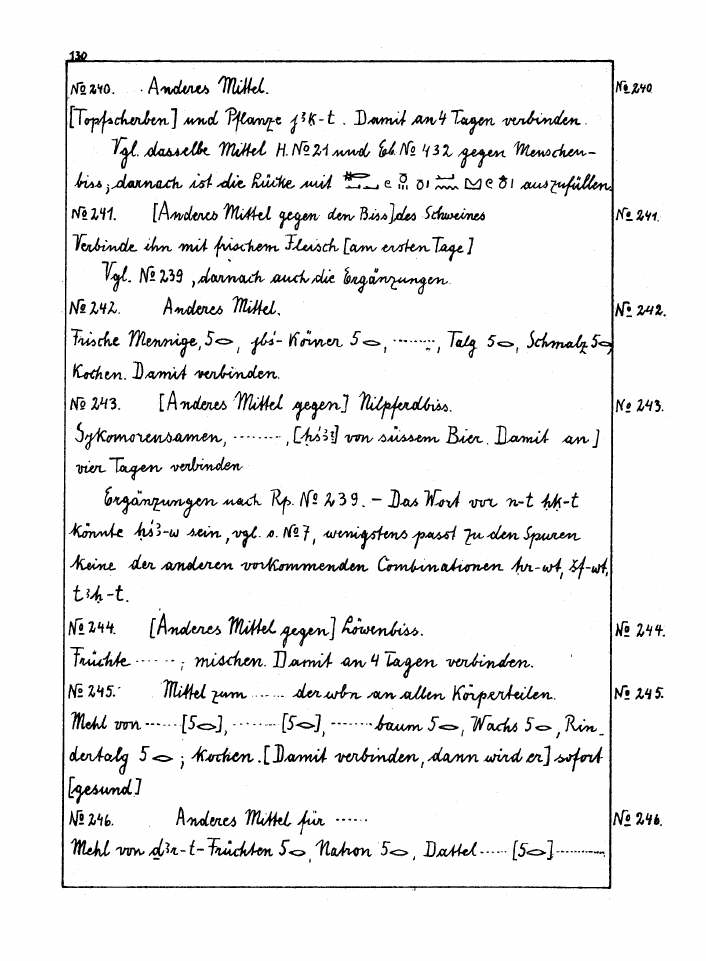 130
№ 240. Anderes Mittel. № 240
[Topfscherben] und Pflanze jꜣk-t. Damit an 4 Tagen verbinden.
Vgl. dasselbe Mittel H. № 21 und Eb. № 432 gegen Menschen-
biss; darnach ist die Lücke mit auszufüllen.
№ 241. [Anderes Mittel gegen den Biss] des Schweines № 241.
Verbinde ihn mit frischem Fleisch [am ersten Tage]
Vgl. № 239, darnach auch die Ergänzungen.
№ 242. Anderes Mittel. № 242.
Frische Mennige, 5, jbś-Körner 5, ........, Talg 5, Schmalz 5
Kochen. Damit verbinden.
№ 243. [Anderes Mittel gegen] Nilpferdbiss. № 243.
Sykomorensamen, ........, [ḥśꜣ?] von süssem Bier. Damit an]
vier Tagen verbinden
Ergänzungen nach Rp. № 239. – Das Wort vor n-t ḥk-t
könnte ḥśꜣ-w sein, vgl. o. № 7, wenigstens passt zu den Spuren
keine der anderen vorkommenden Combinationen ḥr-wt, šf-wt,
tꜣḥ-t.
№ 244. [Anderes Mittel gegen] Löwenbiss. № 244.
Früchte ......; mischen. Damit an 4 Tagen verbinden.
№ 245. Mittel zum ...... der wbn an allen Körperteilen. № 245.
Mehl von ...... [5], ........ [5], ....... baum 5, Wachs 5, Rin-
dertalg 5; Kochen. [Damit verbinden, dann wird er] sofort
[gesund]
№ 246. Anderes Mittel für ...... № 246.
Mehl von dꜣr-t-Früchten 5, Natron 5, Dattel ..... [5] ..........